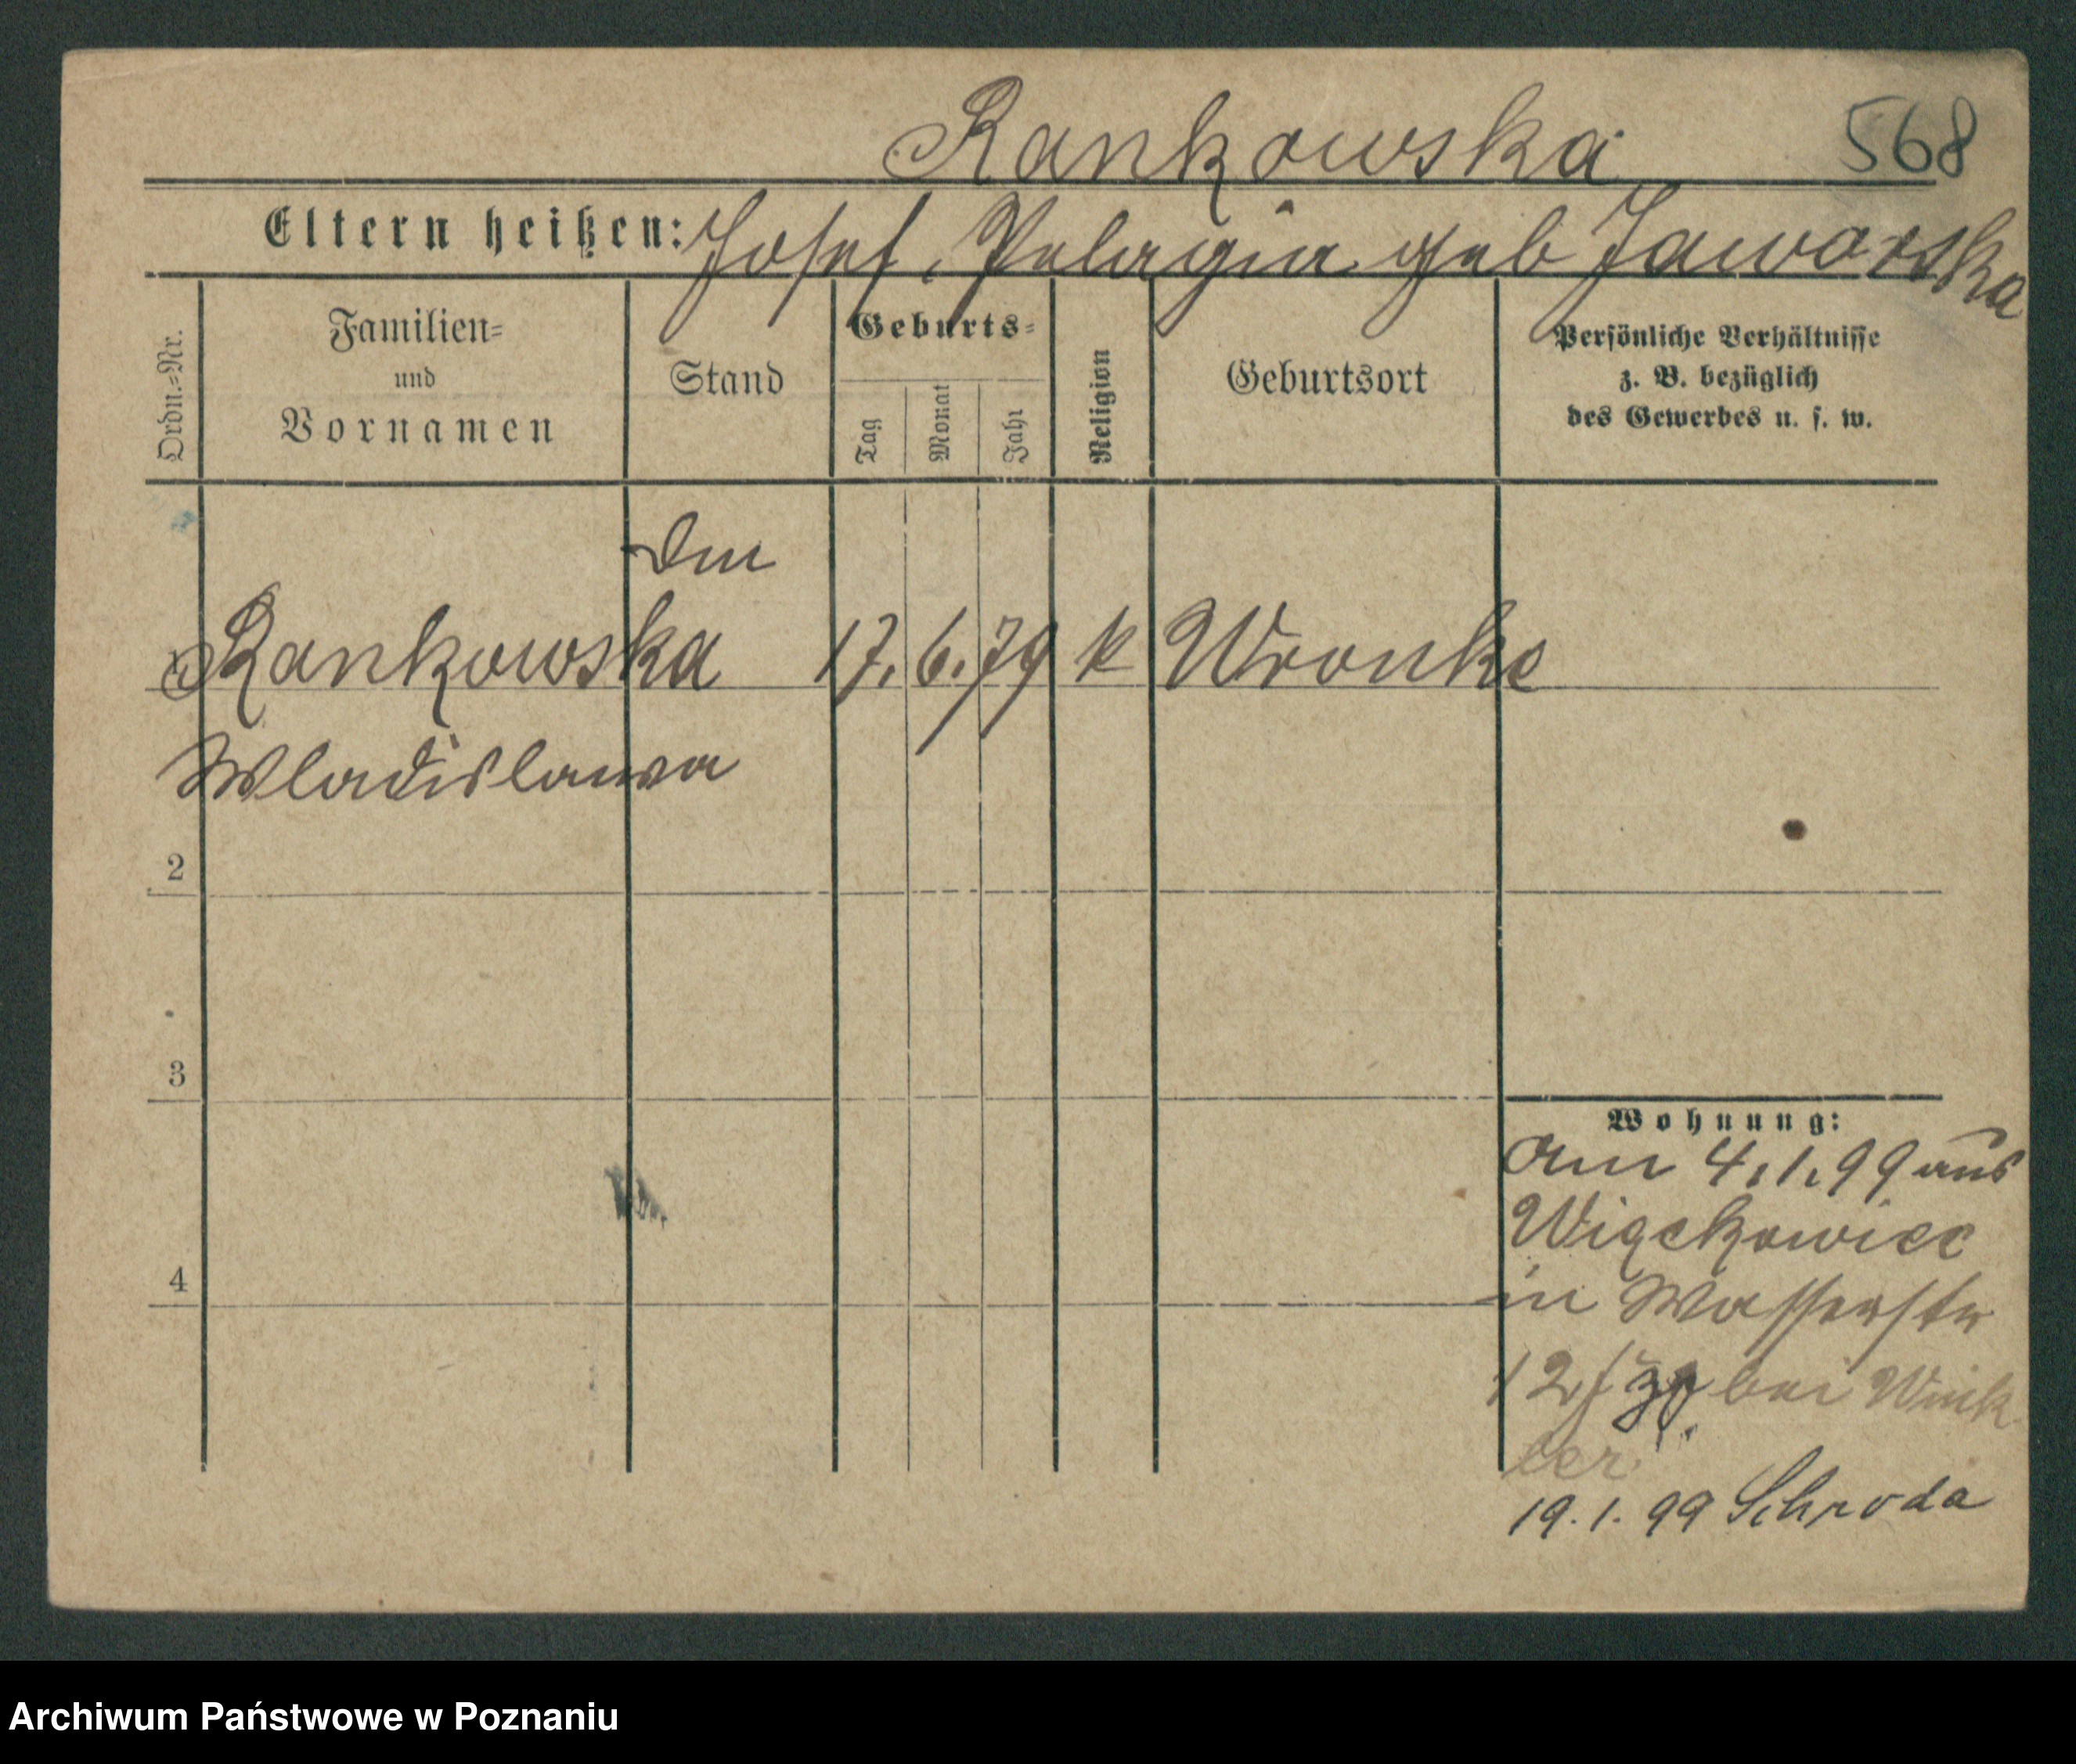 Rankowska
568
Eltern heißen: Josef, Pelagia geb Jaworska
Ordn.=Nr.
Familien=
und
Vornamen
Stand
Geburts=
Tag
Monat
Jahr
Religion
Geburtsort
Persönliche Verhältnisse
z. B. bezüglich
des Gewerbes u. s. w.
Rankowska 17. 6. 79 k Wronke
Wladislawa
2
3
4
Wohnung:
am 4.1.99 aus
Wiąckowice
in Wasserstr
12 bei Wink-
ler
19.1.99 Schroda
Archiwum Państwowe w Poznaniu